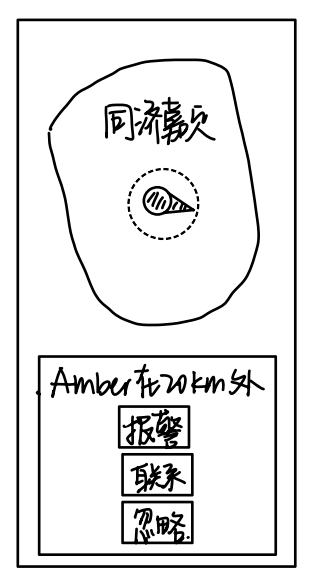 同济嘉定
Amber在20km外
报警
联系
忽略